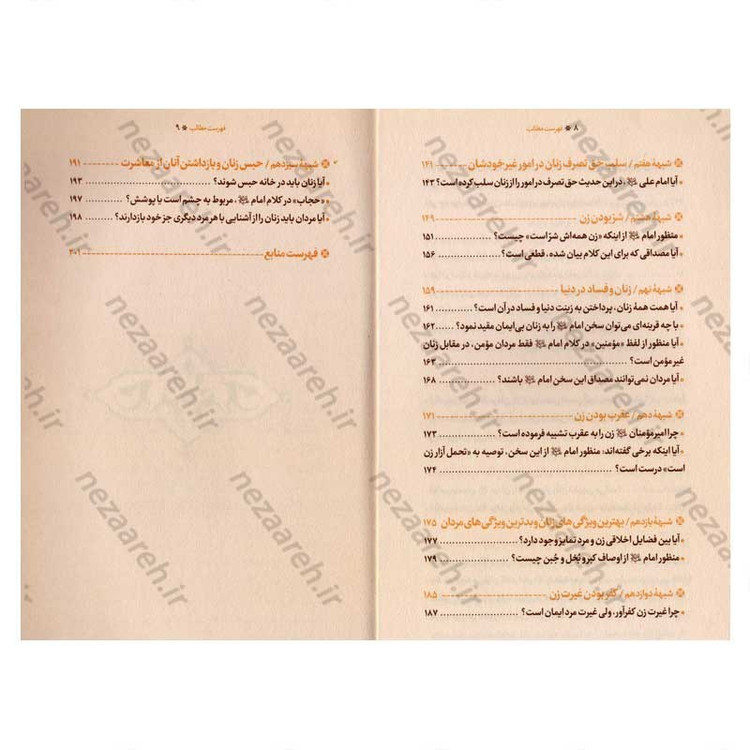 ۸ ❋ فهرست مطالب
❋ شبههٔ هفتم / سلب حق تصرف زنان در امور غیر خودشان ۱۴۱
• آیا امام علی ﷺ، در این حدیث حق تصرف در امور را از زنان سلب کرده است؟ ۱۴۳
❋ شبههٔ هشتم / شرّ بودن زن ۱۴۹
• منظور امام ﷺ از اینکه «زن همه‌اش شرّ است» چیست؟ ۱۵۱
• آیا مصداقی که برای این کلام بیان شده، قطعی است؟ ۱۵۶
❋ شبههٔ نهم / زنان و فساد در دنیا ۱۵۹
• آیا همت همهٔ زنان، پرداختن به زینت دنیا و فساد در آن است؟ ۱۶۱
• با چه قرینه‌ای می‌توان سخن امام ﷺ را به زنان بی‌ایمان مقید نمود؟ ۱۶۲
• آیا منظور از لفظ «مؤمنین» در کلام امام ﷺ فقط مردان مؤمن، در مقابل زنان
غیر مؤمن است؟ ۱۶۳
• آیا مردان نمی‌توانند مصداق این سخن امام ﷺ باشند؟ ۱۶۸
❋ شبههٔ دهم / عقرب بودن زن ۱۷۱
• چرا امیرمؤمنان ﷺ زن را به عقرب تشبیه فرموده است؟ ۱۷۳
• آیا اینکه برخی گفته‌اند: منظور امام ﷺ از این سخن، توصیه به «تحمل آزار زن
است» درست است؟ ۱۷۴
❋ شبههٔ یازدهم / بهترین ویژگی های زنان و بدترین ویژگی های مردان ۱۷۵
• آیا بین فضایل اخلاقی زن و مرد تمایز وجود دارد؟ ۱۷۷
• منظور امام ﷺ از اوصاف کبر و بُخل و جُبن چیست؟ ۱۷۹
❋ شبههٔ دوازدهم / کفر بودن غیرت زن ۱۸۵
• چرا غیرت زن کفرآور، ولی غیرت مرد ایمان است؟ ۱۸۷
فهرست مطالب ❋ ۹
❋ شبههٔ سیزدهم / حبس زنان و بازداشتن آنان از معاشرت ۱۹۱
• آیا زنان باید در خانه حبس شوند؟ ۱۹۳
• «حجاب» در کلام امام ﷺ، مربوط به چشم است یا پوشش؟ ۱۹۷
• آیا مردان باید زنان را از آشنایی با هر مرد دیگری جز خود بازدارند؟ ۱۹۸
❋ فهرست منابع ۲۰۱
nezaareh.ir